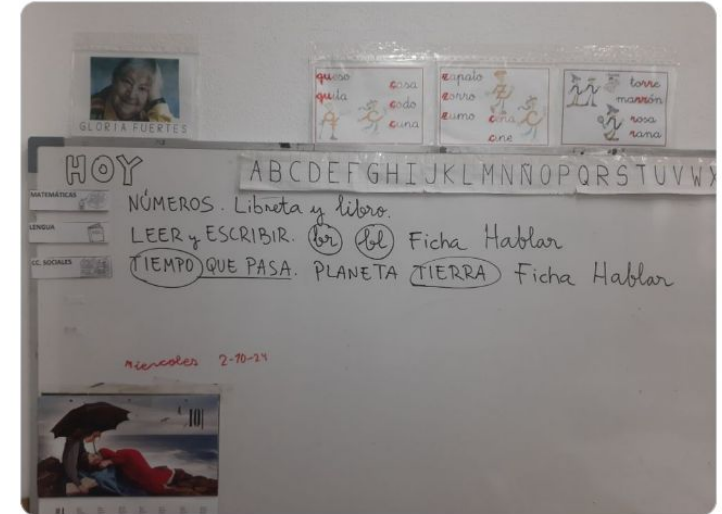 GLORIA FUERTES
queso
quita
casa
codo
cuna
zapato
zorro
zumo
cine
torre
marrón
rosa
rana
HOY
ABCDEFGHIJKLMNÑOPQRSTUVWX
MATEMÁTICAS
NÚMEROS. Libreta y libro.
LENGUA
LEER y ESCRIBIR. br bl Ficha Hablar
CC. SOCIALES
TIEMPO QUE PASA. PLANETA TIERRA Ficha Hablar
Miercoles 2-10-24
10